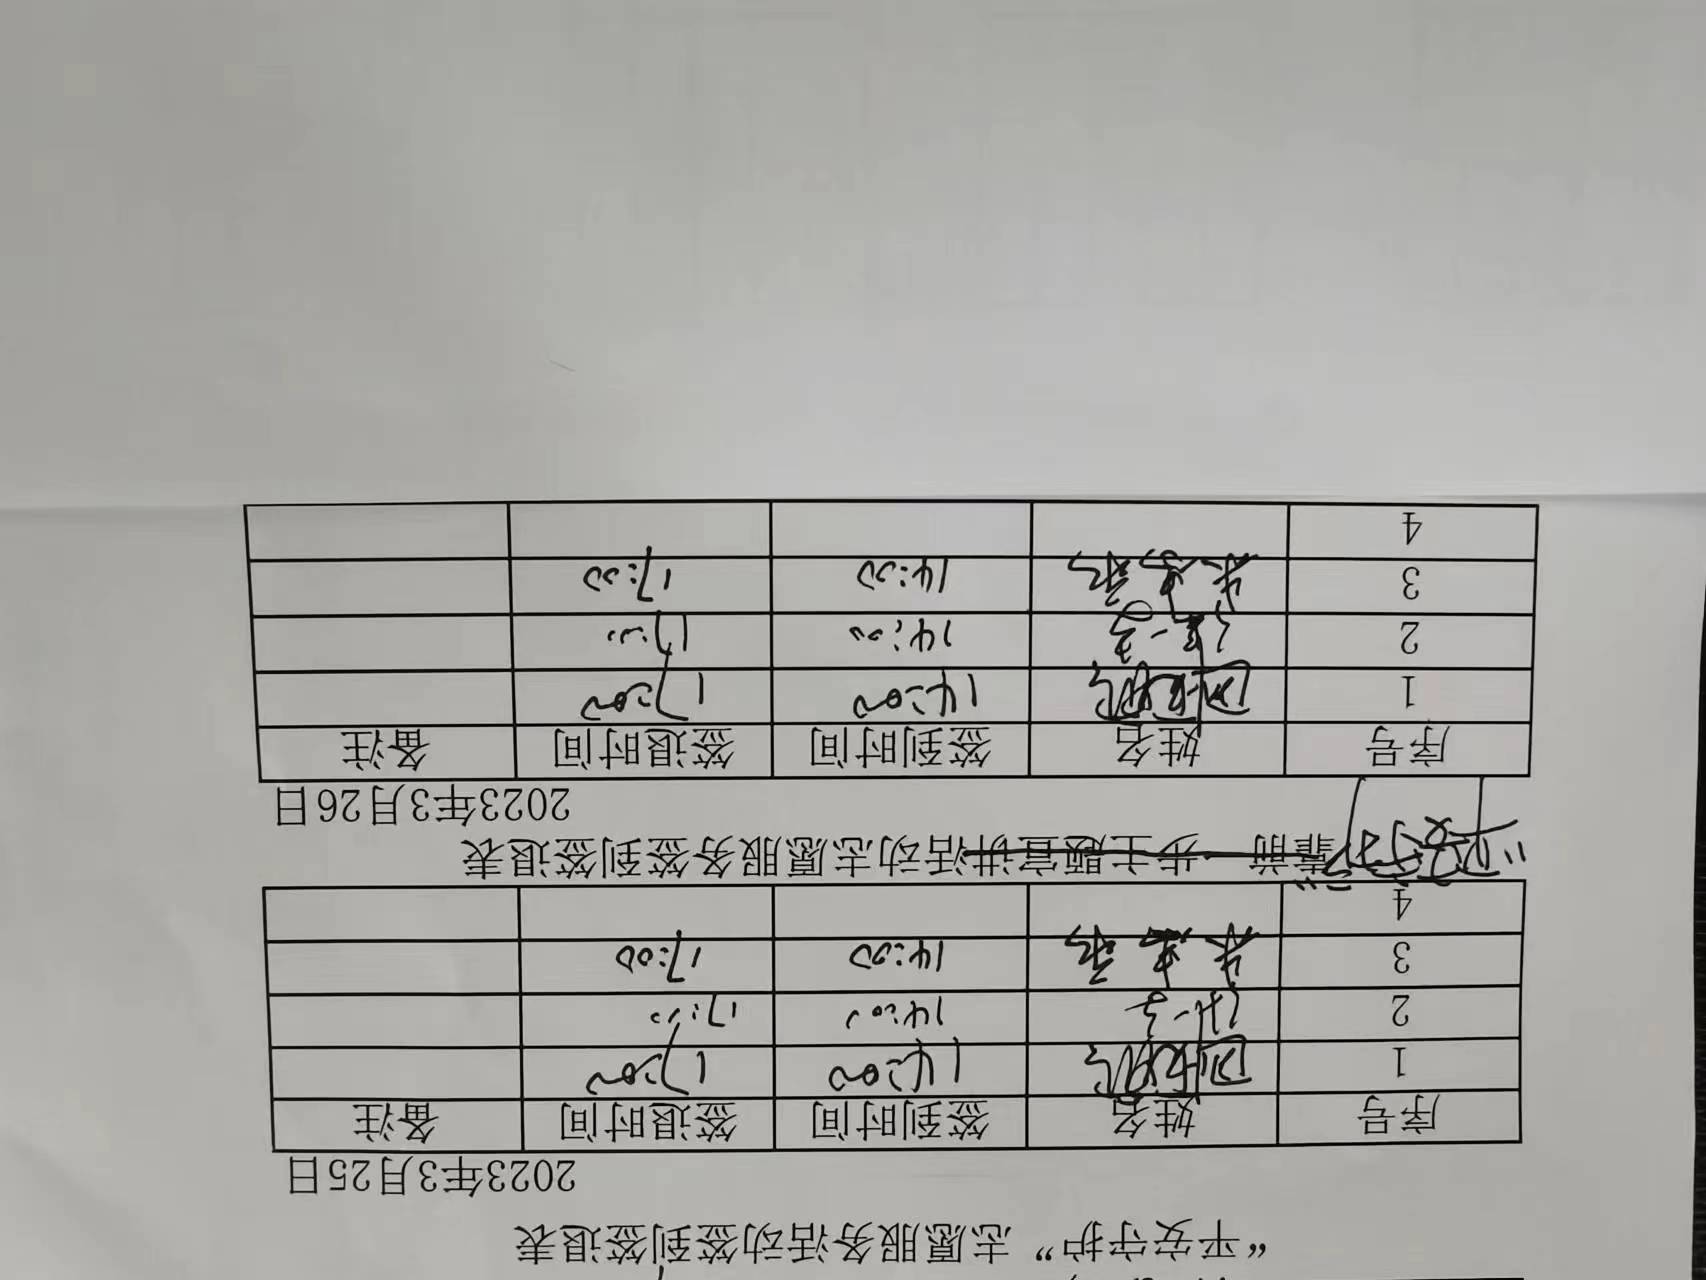 “平安守护”志愿服务活动签到签退表
2023年3月25日
序号 姓名 签到时间 签退时间 备注
1 14:00 17:00
2 14:00 17:00
3 14:00 17:00
4
“平安守护”靠前一步主题宣讲活动志愿服务签到签退表
2023年3月26日
序号 姓名 签到时间 签退时间 备注
1 14:00 17:00
2 14:00 17:00
3 14:00 17:00
4